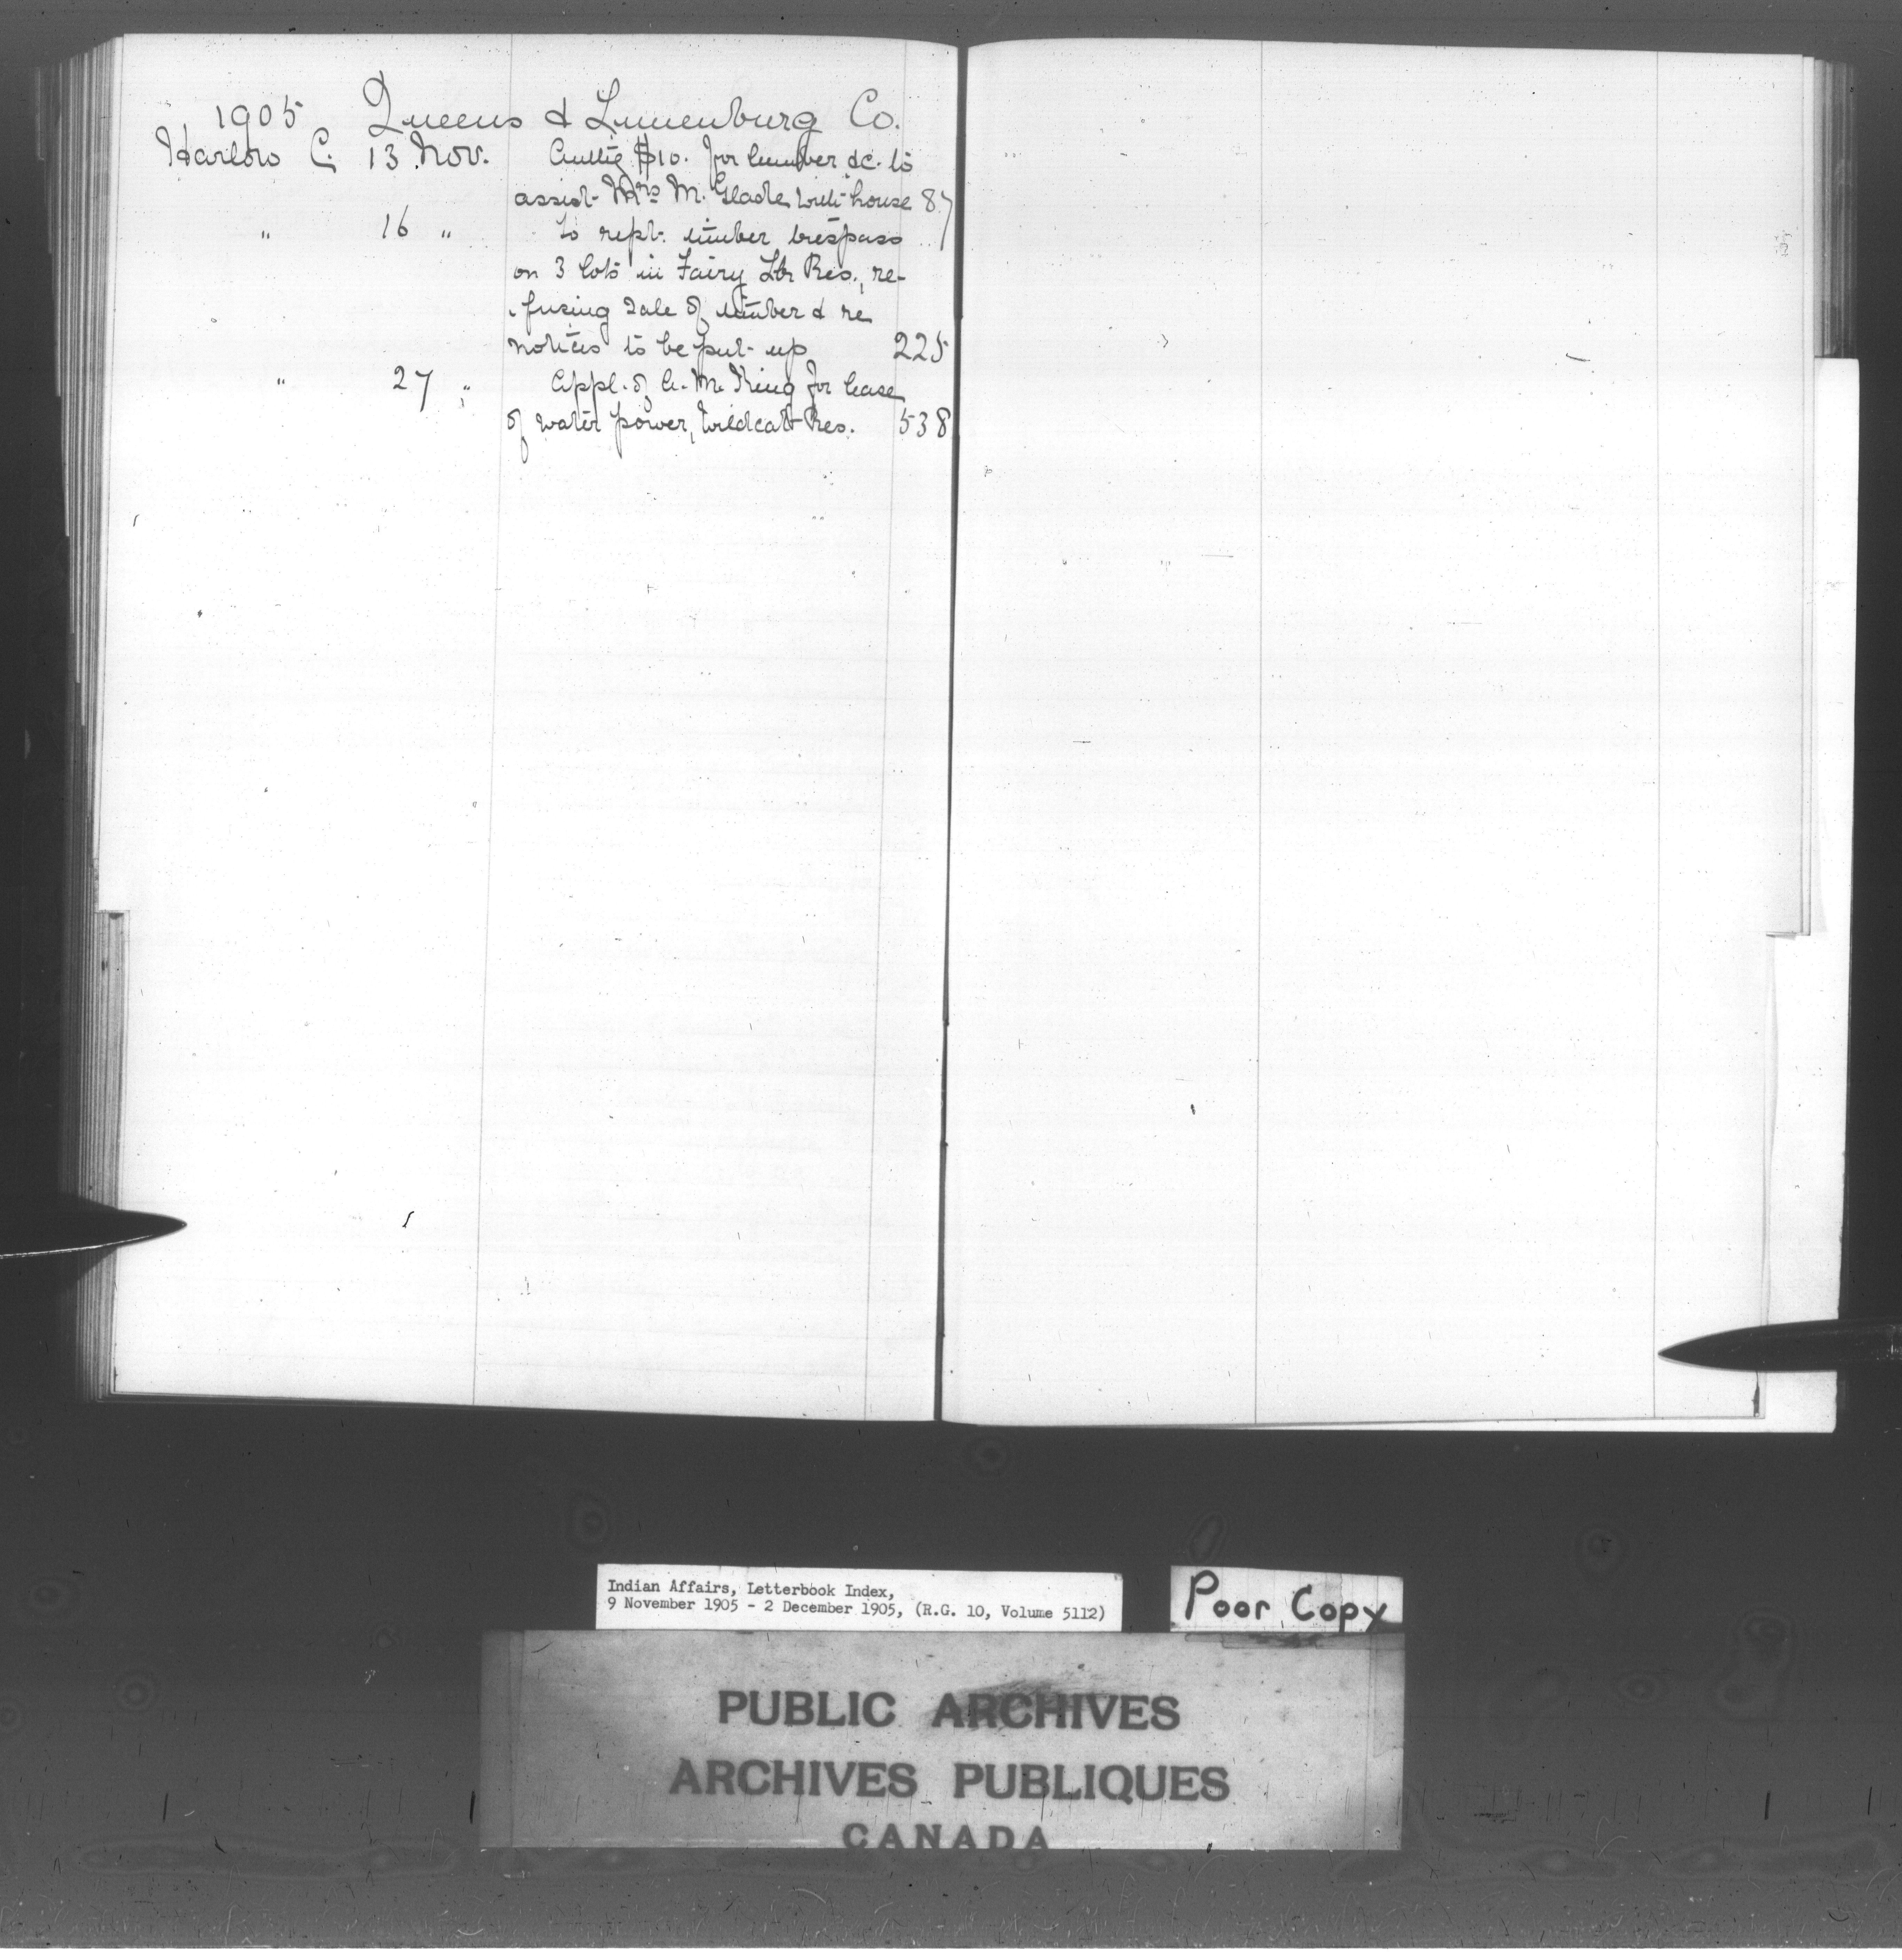 1905 Queens & Lunenburg Co.
Harlow C. 13 Nov. Authg $10. for lumber &c. to
assist Mrs M. Glade with house 87
" 16 " To rept. timber trespass
on 3 lots in Fairy Lke Res., re-
fusing sale of timber & re
notices to be put up 225
" 27 " Appl. of A. M. King for lease
of water power, Wildcat Res. 538
Indian Affairs, Letterbook Index,
9 November 1905 - 2 December 1905, (R.G. 10, Volume 5112)
Poor Copy
PUBLIC ARCHIVES
ARCHIVES PUBLIQUES
CANADA